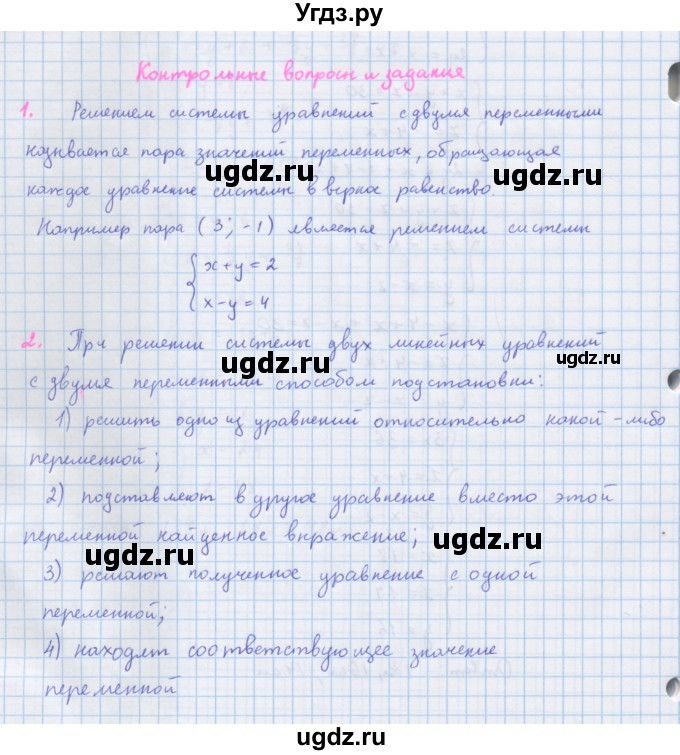 Угдз.ру
Контрольные вопросы и задания
1. Решением системы уравнений с двумя переменными
называется пара значений переменных, обращающая
ugdz.ru ugdz.ru
каждое уравнение системы в верное равенство.
Например пара (3; -1) является решением системы
x+y=2
x-y=4
2. При решении системы двух линейных уравнений
ugdz.ru ugdz.ru
с двумя переменными способом подстановки:
1) решить одно из уравнений относительно какой-либо
переменной;
2) подставляют в другое уравнение вместо этой
переменной найденное выражение;
ugdz.ru ugdz.ru
3) решают полученное уравнение с одной
переменной;
4) находят соответствующее значение
переменной
ugdz.ru